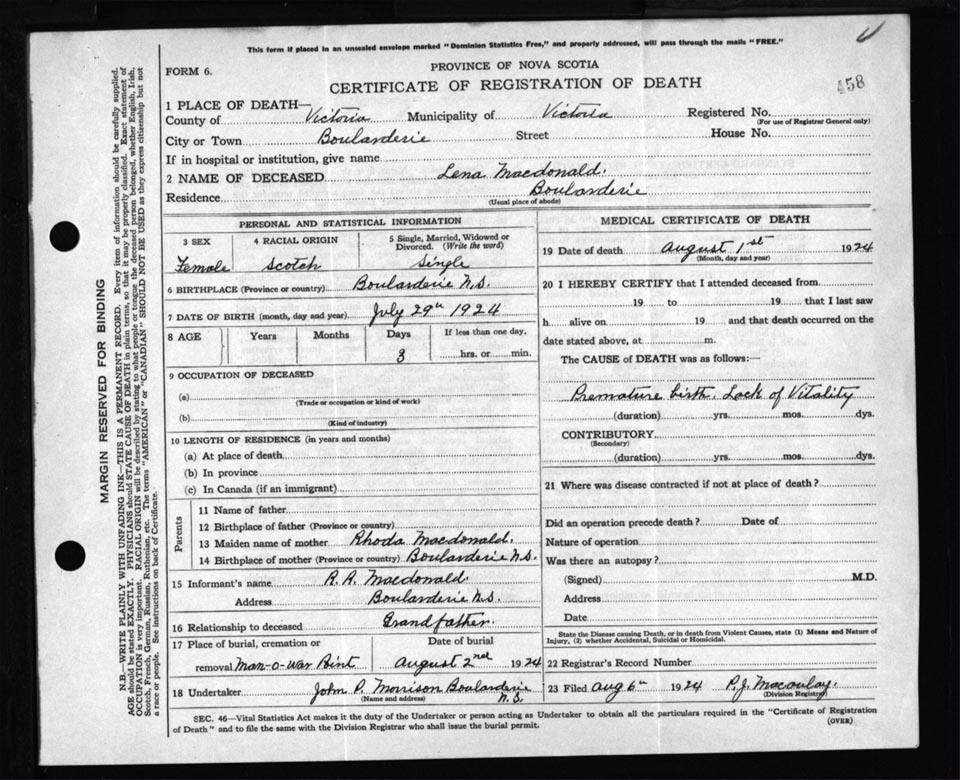 This form if placed in an unsealed envelope marked "Dominion Statistics Free," and properly addressed, will pass through the mails "FREE."
FORM 6.
PROVINCE OF NOVA SCOTIA
CERTIFICATE OF REGISTRATION OF DEATH
458
1 PLACE OF DEATH—
County of Victoria Municipality of Victoria Registered No.
(For use of Registrar General only)
City or Town Boularderie Street House No.
If in hospital or institution, give name
2 NAME OF DECEASED Lena Macdonald.
Residence Boularderie
(Usual place of abode)
PERSONAL AND STATISTICAL INFORMATION
3 SEX 4 RACIAL ORIGIN 5 Single, Married, Widowed or Divorced. (Write the word)
Female Scotch Single
6 BIRTHPLACE (Province or country) Boularderie N.S.
7 DATE OF BIRTH (month, day and year) July 29th 1924
8 AGE Years Months Days If less than one day,
3 hrs. or min.
9 OCCUPATION OF DECEASED
(a)
(Trade or occupation or kind of work)
(b)
(Kind of industry)
10 LENGTH OF RESIDENCE (in years and months)
(a) At place of death
(b) In province
(c) In Canada (if an immigrant)
Parents
11 Name of father
12 Birthplace of father (Province or country)
13 Maiden name of mother Rhoda Macdonald.
14 Birthplace of mother (Province or country) Boularderie N.S.
15 Informant's name R. R. Macdonald.
Address Boularderie N.S.
16 Relationship to deceased Grandfather.
17 Place of burial, cremation or Date of burial
removal Man-o-war Point August 2nd 1924
18 Undertaker John P. Morison Boularderie N.S.
(Name and address)
MEDICAL CERTIFICATE OF DEATH
19 Date of death August 1st 1924
(Month, day and year)
20 I HEREBY CERTIFY that I attended deceased from
19 to 19 that I last saw
h alive on 19 and that death occurred on the
date stated above, at m.
The CAUSE of DEATH was as follows:—
Premature birth. Lack of Vitality
(duration) yrs. mos. dys.
CONTRIBUTORY
(Secondary)
(duration) yrs. mos. dys.
21 Where was disease contracted if not at place of death?
Did an operation precede death? Date of
Nature of operation
Was there an autopsy?
(Signed) M.D.
Address
Date
State the Disease causing Death, or in death from Violent Causes, state (1) Means and Nature of
Injury, (2) whether Accidental, Suicidal or Homicidal.
22 Registrar's Record Number
23 Filed Aug 6th 1924 P.J. Macaulay.
(Division Registrar)
SEC. 46—Vital Statistics Act makes it the duty of the Undertaker or person acting as Undertaker to obtain all the particulars required in the "Certificate of Registration
of Death" and to file the same with the Division Registrar who shall issue the burial permit.
(OVER)
MARGIN RESERVED FOR BINDING
N.B.—WRITE PLAINLY WITH UNFADING INK—THIS IS A PERMANENT RECORD. Every item of information should be carefully supplied.
AGE should be stated EXACTLY. PHYSICIANS should STATE CAUSE OF DEATH in plain terms, so that it may be properly classified. Exact statement of
OCCUPATION is very important. RACIAL ORIGIN will be described by stating to what people or tongue the deceased person belonged, whether English, Irish,
Scotch, French, German, Russian, Ruthenian, etc. The terms "AMERICAN" or "CANADIAN" SHOULD NOT BE USED as they express citizenship but not
a race or people. See instructions on back of Certificate.